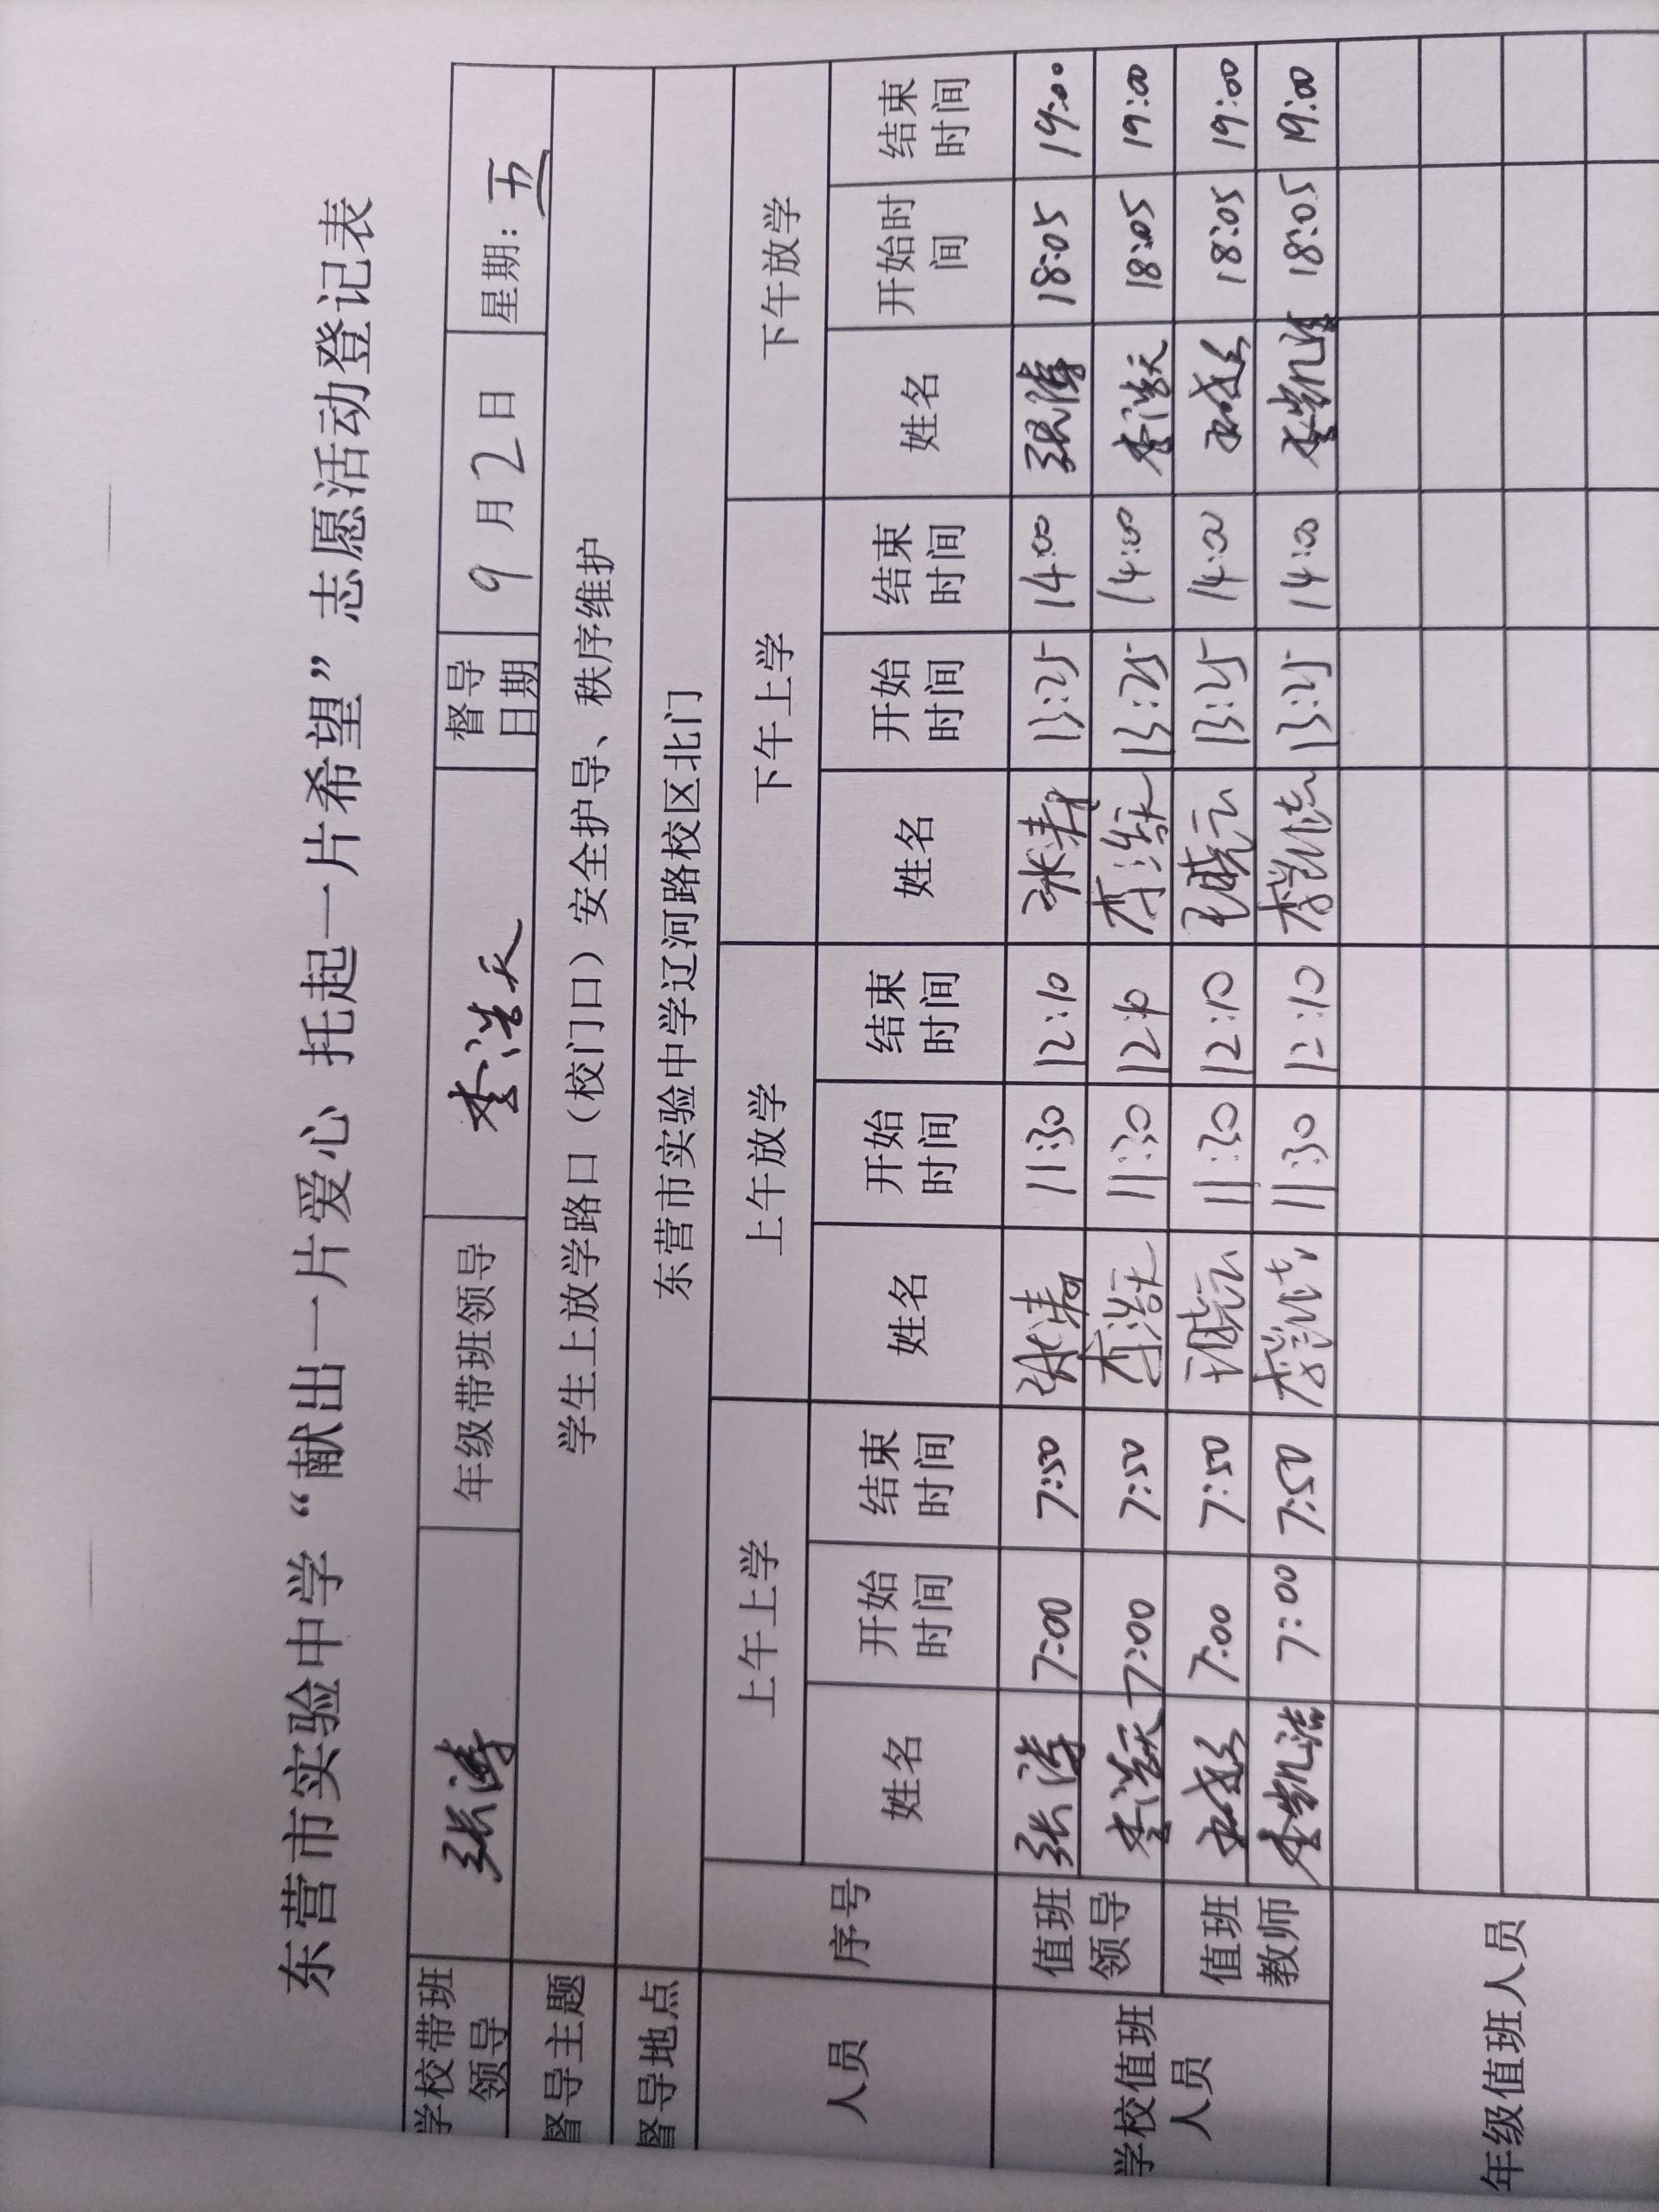 东营市实验中学“献出一片爱心 托起一片希望”志愿活动登记表
学校带班领导 张涛 年级带班领导 李浩天 督导日期 9月2日 星期：五
督导主题 学生上放学路口（校门口）安全护导、秩序维护
督导地点 东营市实验中学辽河路校区北门
人员 序号 上午上学 上午放学 下午上学 下午放学
姓名 开始时间 结束时间 姓名 开始时间 结束时间 姓名 开始时间 结束时间 姓名 开始时间 结束时间
学校值班人员 值班领导 张涛 7:00 7:50 张涛 11:30 12:10 张涛 13:25 14:00 张涛 18:05 19:00
李浩天 7:00 7:50 李浩天 11:30 12:10 李浩天 13:25 14:00 李浩天 18:05 19:00
值班教师 7:00 7:50 11:30 12:10 13:25 14:00 18:05 19:00
李凯洁 7:00 7:50 11:30 12:10 13:25 14:00 李凯洁 18:05 19:00
年级值班人员